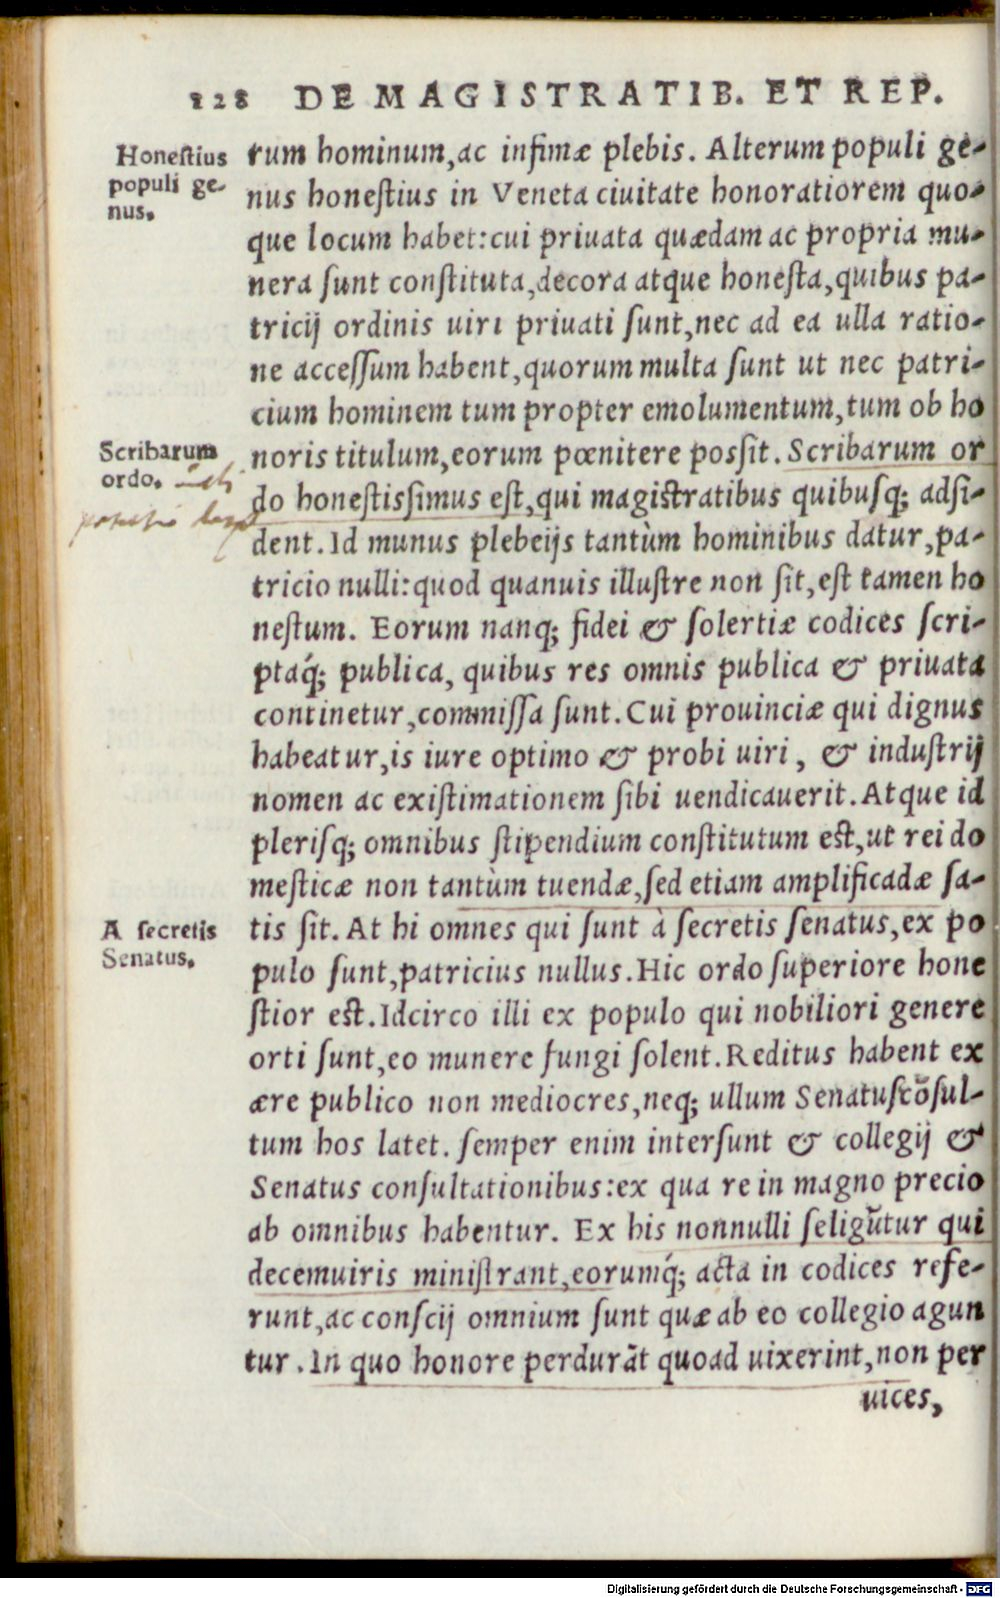 128 DE MAGISTRATIB. ET REP.
Honeſtius
populi ge-
nus.
rum hominum, ac infimæ plebis. Alterum populi ge-
nus honeſtius in Veneta ciuitate honoratiorem quo-
que locum habet: cui priuata quædam ac propria mu-
nera ſunt conſtituta, decora atque honeſta, quibus pa-
tricij ordinis uiri priuati ſunt, nec ad ea ulla ratio-
ne acceſſum habent, quorum multa ſunt ut nec patri-
cium hominem tum propter emolumentum, tum ob ho
noris titulum, eorum pœnitere poſsit. Scribarum or
Scribarum
ordo.
do honeſtiſsimus eſt, qui magiſtratibus quibuſq; adſi-
dent. Id munus plebeijs tantùm hominibus datur, pa-
tricio nulli: quod quanuis illuſtre non ſit, eſt tamen ho
neſtum. Eorum nanq; fidei & ſolertiæ codices ſcri-
ptaq́; publica, quibus res omnis publica & priuata
continetur, commiſſa ſunt. Cui prouinciæ qui dignus
habeatur, is iure optimo & probi uiri, & induſtrij
nomen ac exiſtimationem ſibi uendicauerit. Atque id
pleriſq; omnibus ſtipendium conſtitutum eſt, ut rei do
meſticæ non tantùm tuendæ, ſed etiam amplificãdæ ſa-
A ſecretis
Senatus.
tis ſit. At hi omnes qui ſunt à ſecretis ſenatus, ex po
pulo ſunt, patricius nullus. Hic ordo ſuperiore hone
ſtior eſt. Idcirco illi ex populo qui nobiliori genere
orti ſunt, eo munere fungi ſolent. Reditus habent ex
ære publico non mediocres, neq; ullum Senatuſcõſul-
tum hos latet. ſemper enim interſunt & collegij &
Senatus conſultationibus: ex qua re in magno precio
ab omnibus habentur. Ex his nonnulli ſeligũtur qui
decemuiris miniſtrant, eorumq́; acta in codices refe-
runt, ac conſcij omnium ſunt quæ ab eo collegio agun
tur. In quo honore perdurãt quoad uixerint, non per
uices,
Digitalisierung gefördert durch die Deutsche Forschungsgemeinschaft - DFG